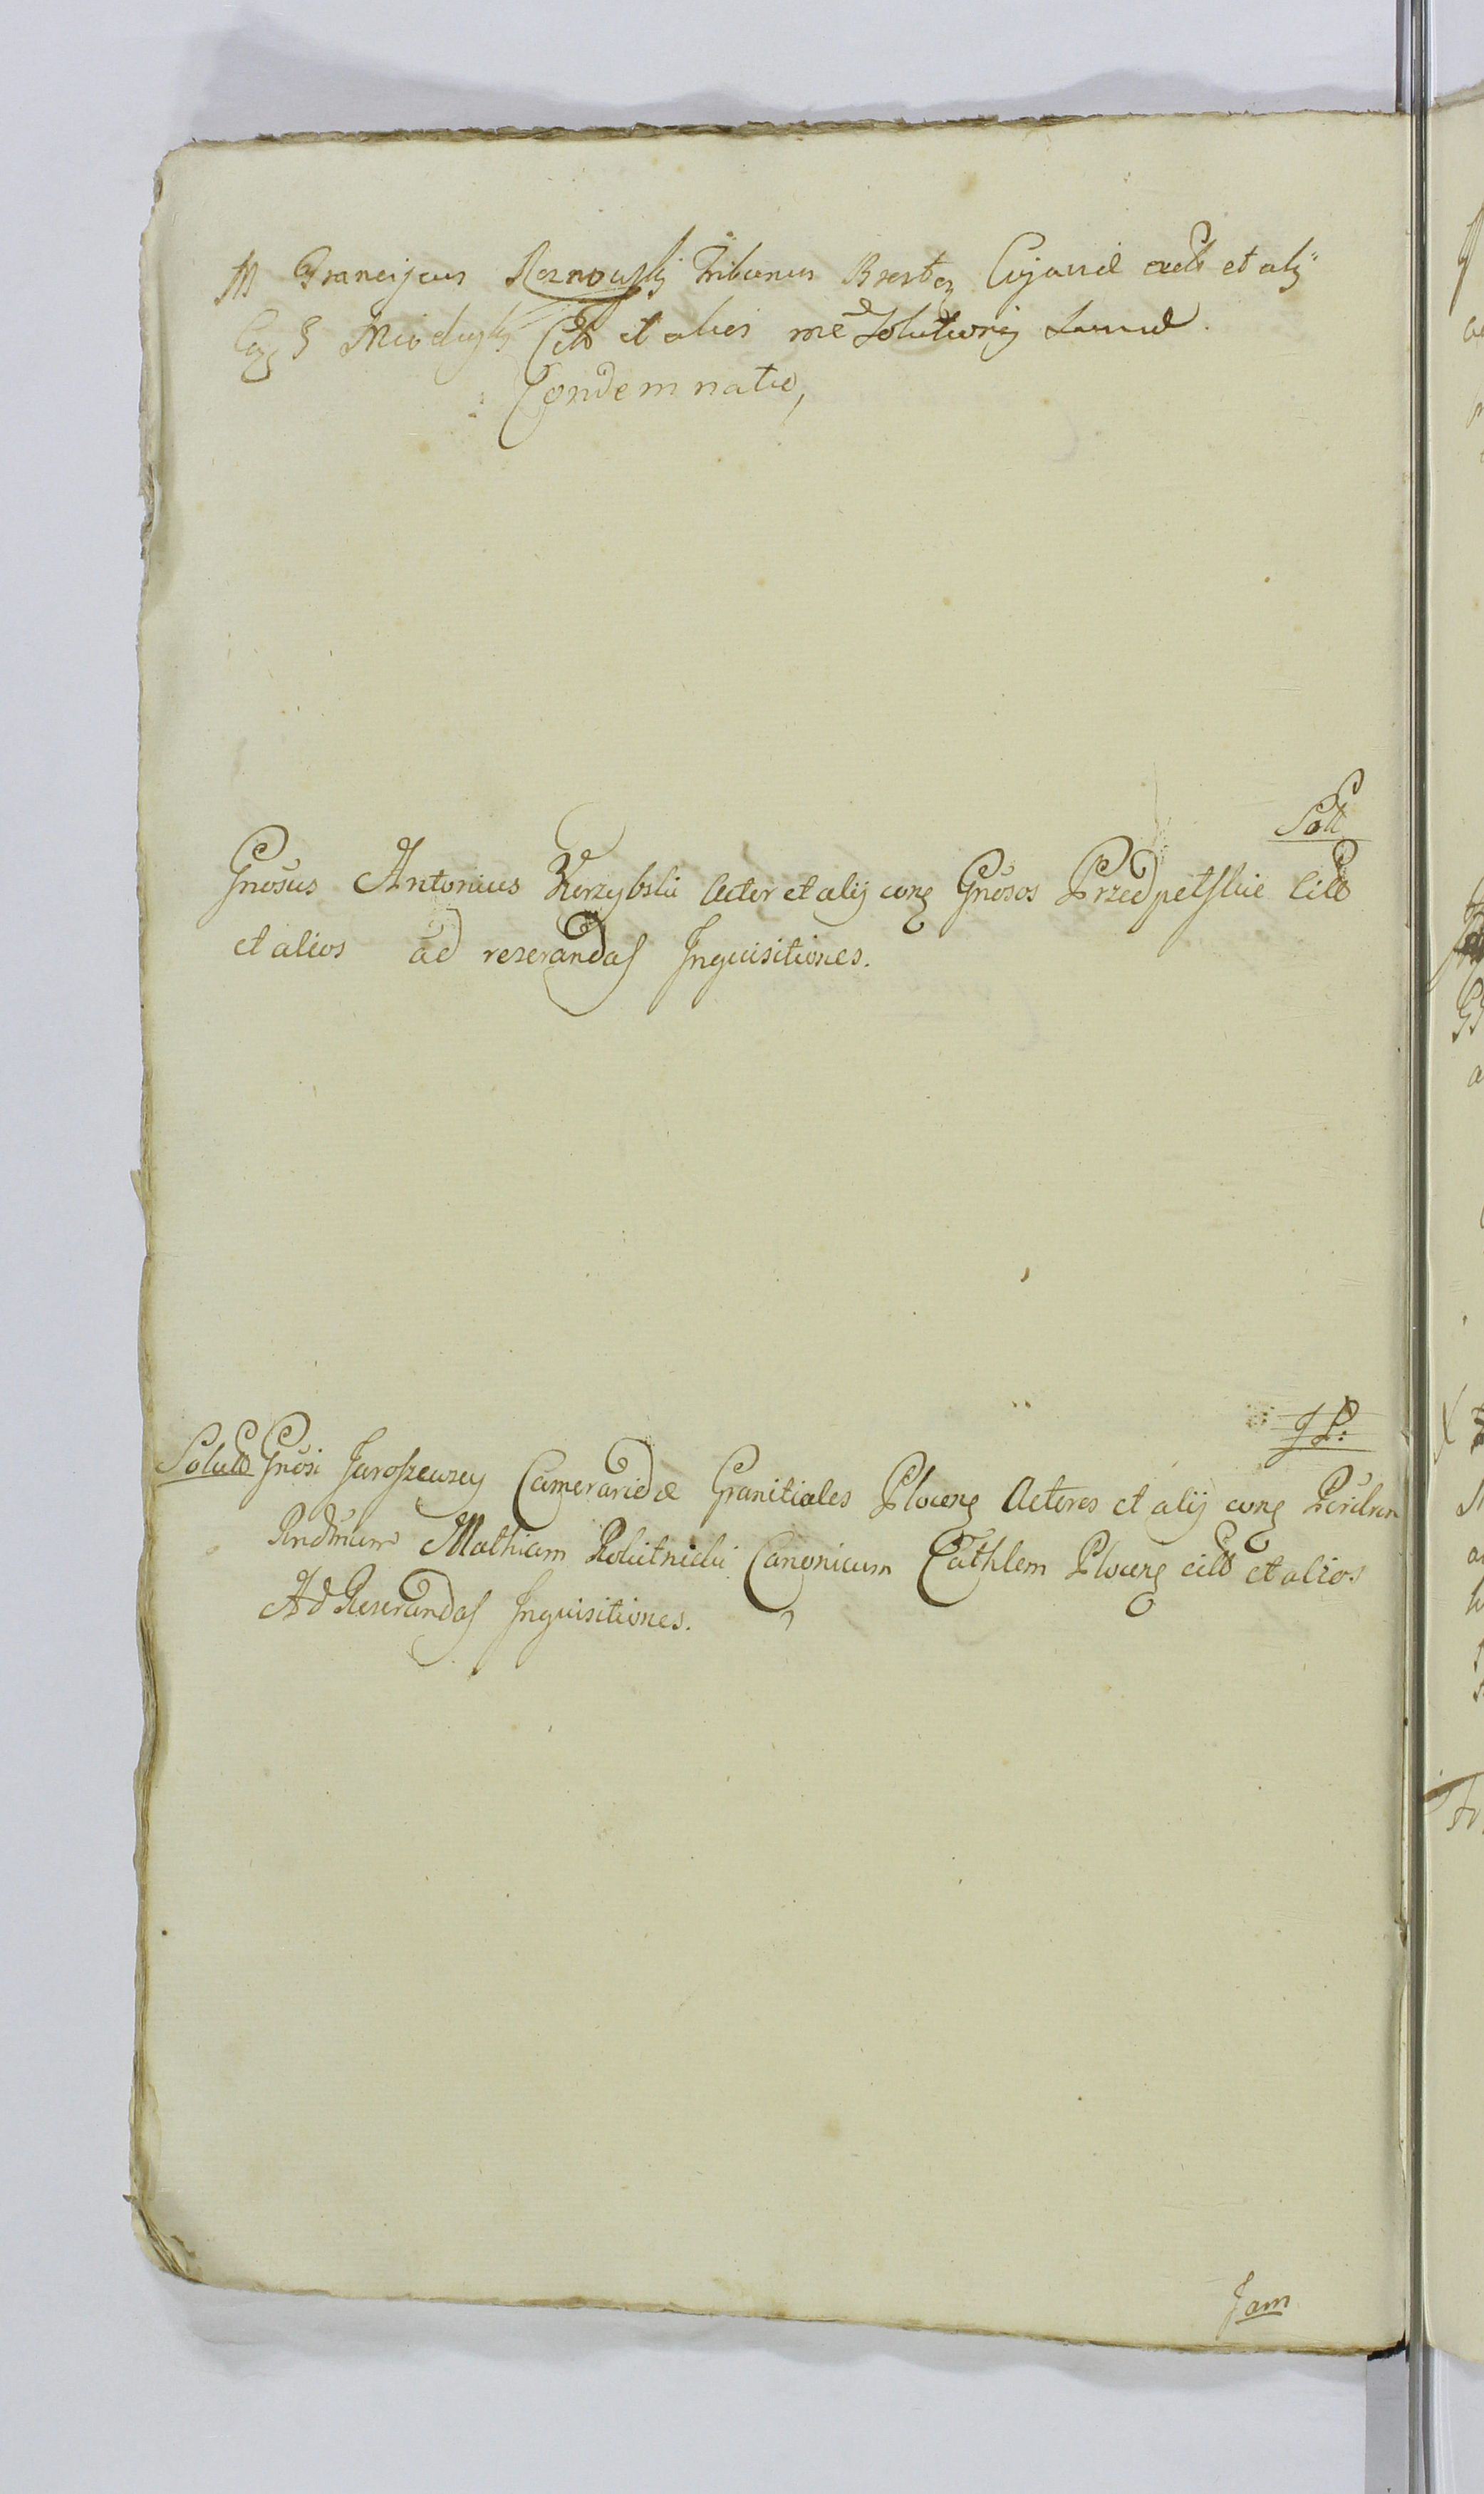 M Franciscus Roznowskj Tribunus Brestens Cujaviæ et alij
Miodusk Citt et alios solutionis summæ.
Condemnatio,
Solt
Gnosus Antonius Karzybski Actor et alij cong Gnosos Przedpełskie Citt
et alios ad reserandas Inquisitiones.
J P:
Solutt Gnosi Jaroszewscy Granitiales Plocens Actores et alij cong
Rndmum Mathiam Rokitnicki Canonicum Cathlem Plocens citt et alios
Ad Reserandas Inquisitiones.
Jam